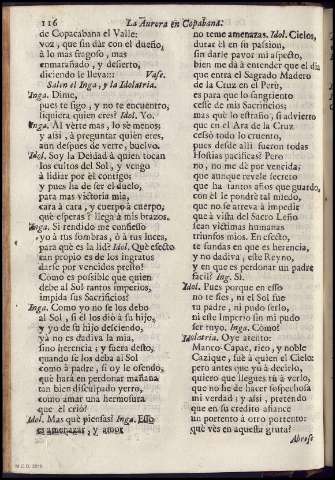 116 La Aurora en Copabana.
de Copacabana el Valle:
voz, que sin dàr con el dueño,
à lo mas fragoso, mas
enmarañado, y desierto,
diciendo le lleva::: Vase.
Salen el Inga, y la Idolatria.
Inga. Dime,
pues te sigo, y no te encuentro,
siquiera quien eres? Idol. Yo.
Inga. Al vèrte mas, lo sè menos;
y assi, à preguntar quien eres,
aun despues de verte, buelvo.
Idol. Soy la Deidad à quien tocan
los cultos del Sol, y vengo
à lidiar por èl contigo:
y pues ha de ser el duelo,
para mas victoria mia,
cara à cara, y cuerpo à cuerpo,
què esperas? llega à mis brazos.
Inga. Si rendido me confiesso
yo à tus sombras, ò à tus luces,
para què es la lid? Idol. Què efecto
tan propio es de los ingratos
darse por vencidos presto!
Como es possible que quien
debe al Sol tantos imperios,
impida sus Sacrificios?
Inga. Como yo no se los debo
al Sol, si èl los diò à su hijo,
y yo de su hijo desciendo,
yà no es dadiva la mia,
sino herencia; y fuera desto,
quando se los deba al Sol
como à padre, si oy le ofendo,
què harà en perdonar mañana
tan bien disculpado yerro,
como amar una hermosura
que èl criò?
Idol. Mas què piensas? Inga. Esso
es amenazar, y amor
no teme amenazas. Idol. Cielos,
durar èl en su passion,
sin darle pavor mi aspecto,
bien me dà à entender que el dia
que entra el Sagrado Madero
de la Cruz en el Perù,
es para que lo sangriento
cesse de mis Sacrificios;
mas què lo estraño, si advierto
que en el Ara de la Cruz
cessò todo lo cruento,
pues desde alli fueron todas
Hostias pacificas? Pero
no, no me dè por vencida;
que aunque revele secreto
que ha tantos años que guardo,
con èl le pondrè tal miedo,
que no se atreva à impedir
que à vista del Sacro Leño
sean victimas humanas
triunfos mios. En efecto,
te fundas en que es herencia,
y no dadiva, este Reyno,
y en que es perdonar un padre
facil? Ing. Sì.
Idol. Pues porque en esso
no te fies, ni el Sol fue
tu padre, ni pudo serlo,
ni este Imperio sin mi pudo
ser tuyo. Inga. Còmo?
Idolatria. Oye atento:
Manco-Capac, rico, y noble
Cazique, fuè à quien el Cielo:
pero antes que yà à decirlo,
quiero que llegues tù à verlo,
que no he de hacer sospechosa
mi verdad; y assi, pretendo
que en su credito afiance
un portento à otro portento:
què vès en aquesta gruta?
Abrese